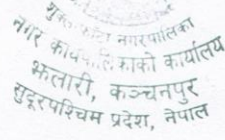 नगरपालिका
नगर कार्यपालिकाको कार्यालय
झलारी, कञ्चनपुर
सुदूरपश्चिम प्रदेश, नेपाल